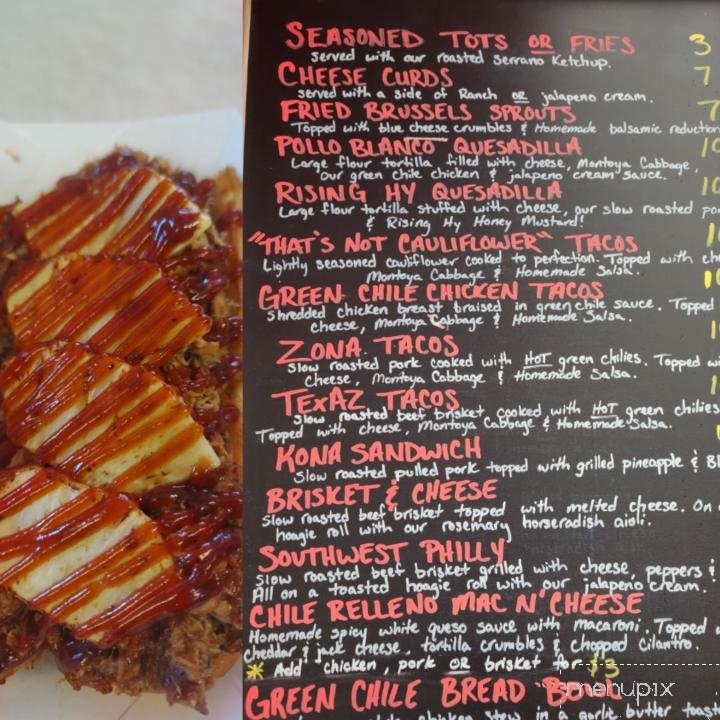 SEASONED TOTS OR FRIES 3
served with our roasted serrano Ketchup.
CHEESE CURDS 7
served with a side of Ranch OR jalapeno cream.
FRIED BRUSSELS SPROUTS 7
Topped with blue cheese crumbles & Homemade balsamic reduction
POLLO BLANCO QUESADILLA 10
Large flour tortilla filled with cheese, Montoya Cabbage,
our green chile chicken & jalapeno cream sauce.
RISING HY QUESADILLA 10
Large flour tortilla stuffed with cheese, our slow roasted
& Rising Hy Honey Mustard!
"THAT'S NOT CAULIFLOWER" TACOS
Lightly seasoned cauliflower cooked to perfection. Topped with
Montoya Cabbage & Homemade Salsa.
GREEN CHILE CHICKEN TACOS
Shredded chicken breast braised in green chile sauce. Topped
cheese, Montoya Cabbage & Homemade Salsa.
ZONA TACOS
Slow roasted pork cooked with HOT green chilies. Topped
cheese, Montoya Cabbage & Homemade Salsa.
TEXAZ TACOS
Slow roasted beef brisket cooked with HOT green chilies
Topped with cheese, Montoya Cabbage & Homemade Salsa.
KONA SANDWICH
Slow roasted pulled pork topped with grilled pineapple &
BRISKET & CHEESE
Slow roasted beef brisket topped with melted cheese. On
hoagie roll with our rosemary horseradish aioli.
SOUTHWEST PHILLY
Slow roasted beef brisket grilled with cheese, peppers &
All on a toasted hoagie roll with our jalapeno cream.
CHILE RELLENO MAC N' CHEESE
Homemade spicy white queso sauce with macaroni. Topped
cheddar & jack cheese, tortilla crumbles & chopped cilantro.
* Add chicken, pork OR brisket for $3
GREEN CHILE BREAD
menupix
chicken stew in a garlic butter